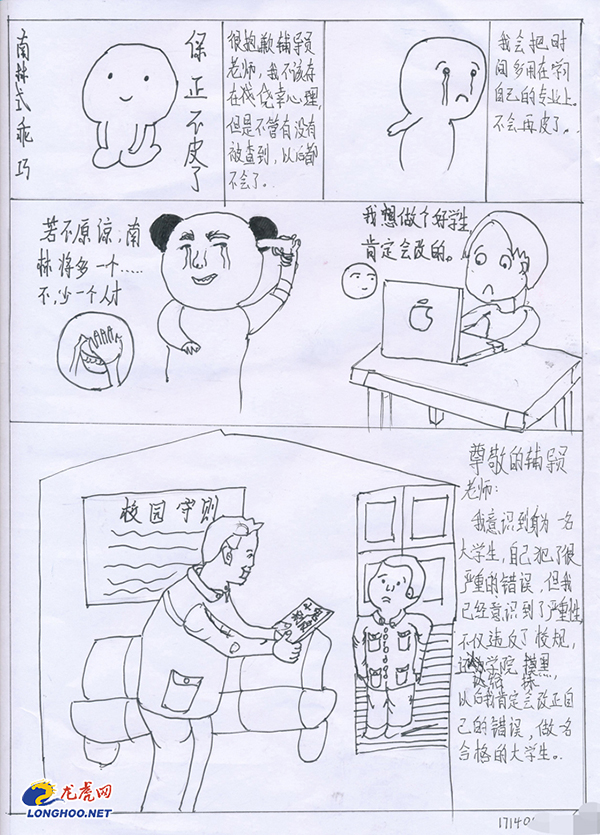 南林式乖巧
保正不皮了
很抱歉辅导员
老师，我不该存
在侥幸心理，
但是不管有没有
被查到，以后都
不会了。
我会把时
间多用在学习
自己的专业上。
不会再皮了。
若不原谅，南
林将多一个……
不，少一个人才
AAAA
我想做个好学生，
肯定会改的。
校园守则
尊敬的辅导员
老师：
我意识到身为一名
大学生，自己犯了很
严重的错误，但我
已经意识到了严重性，
不仅违反了校规，
学院
以后我肯定会改正自
己的错误，做一名
合格的大学生。
龙虎网
LONGHOO.NET
17140